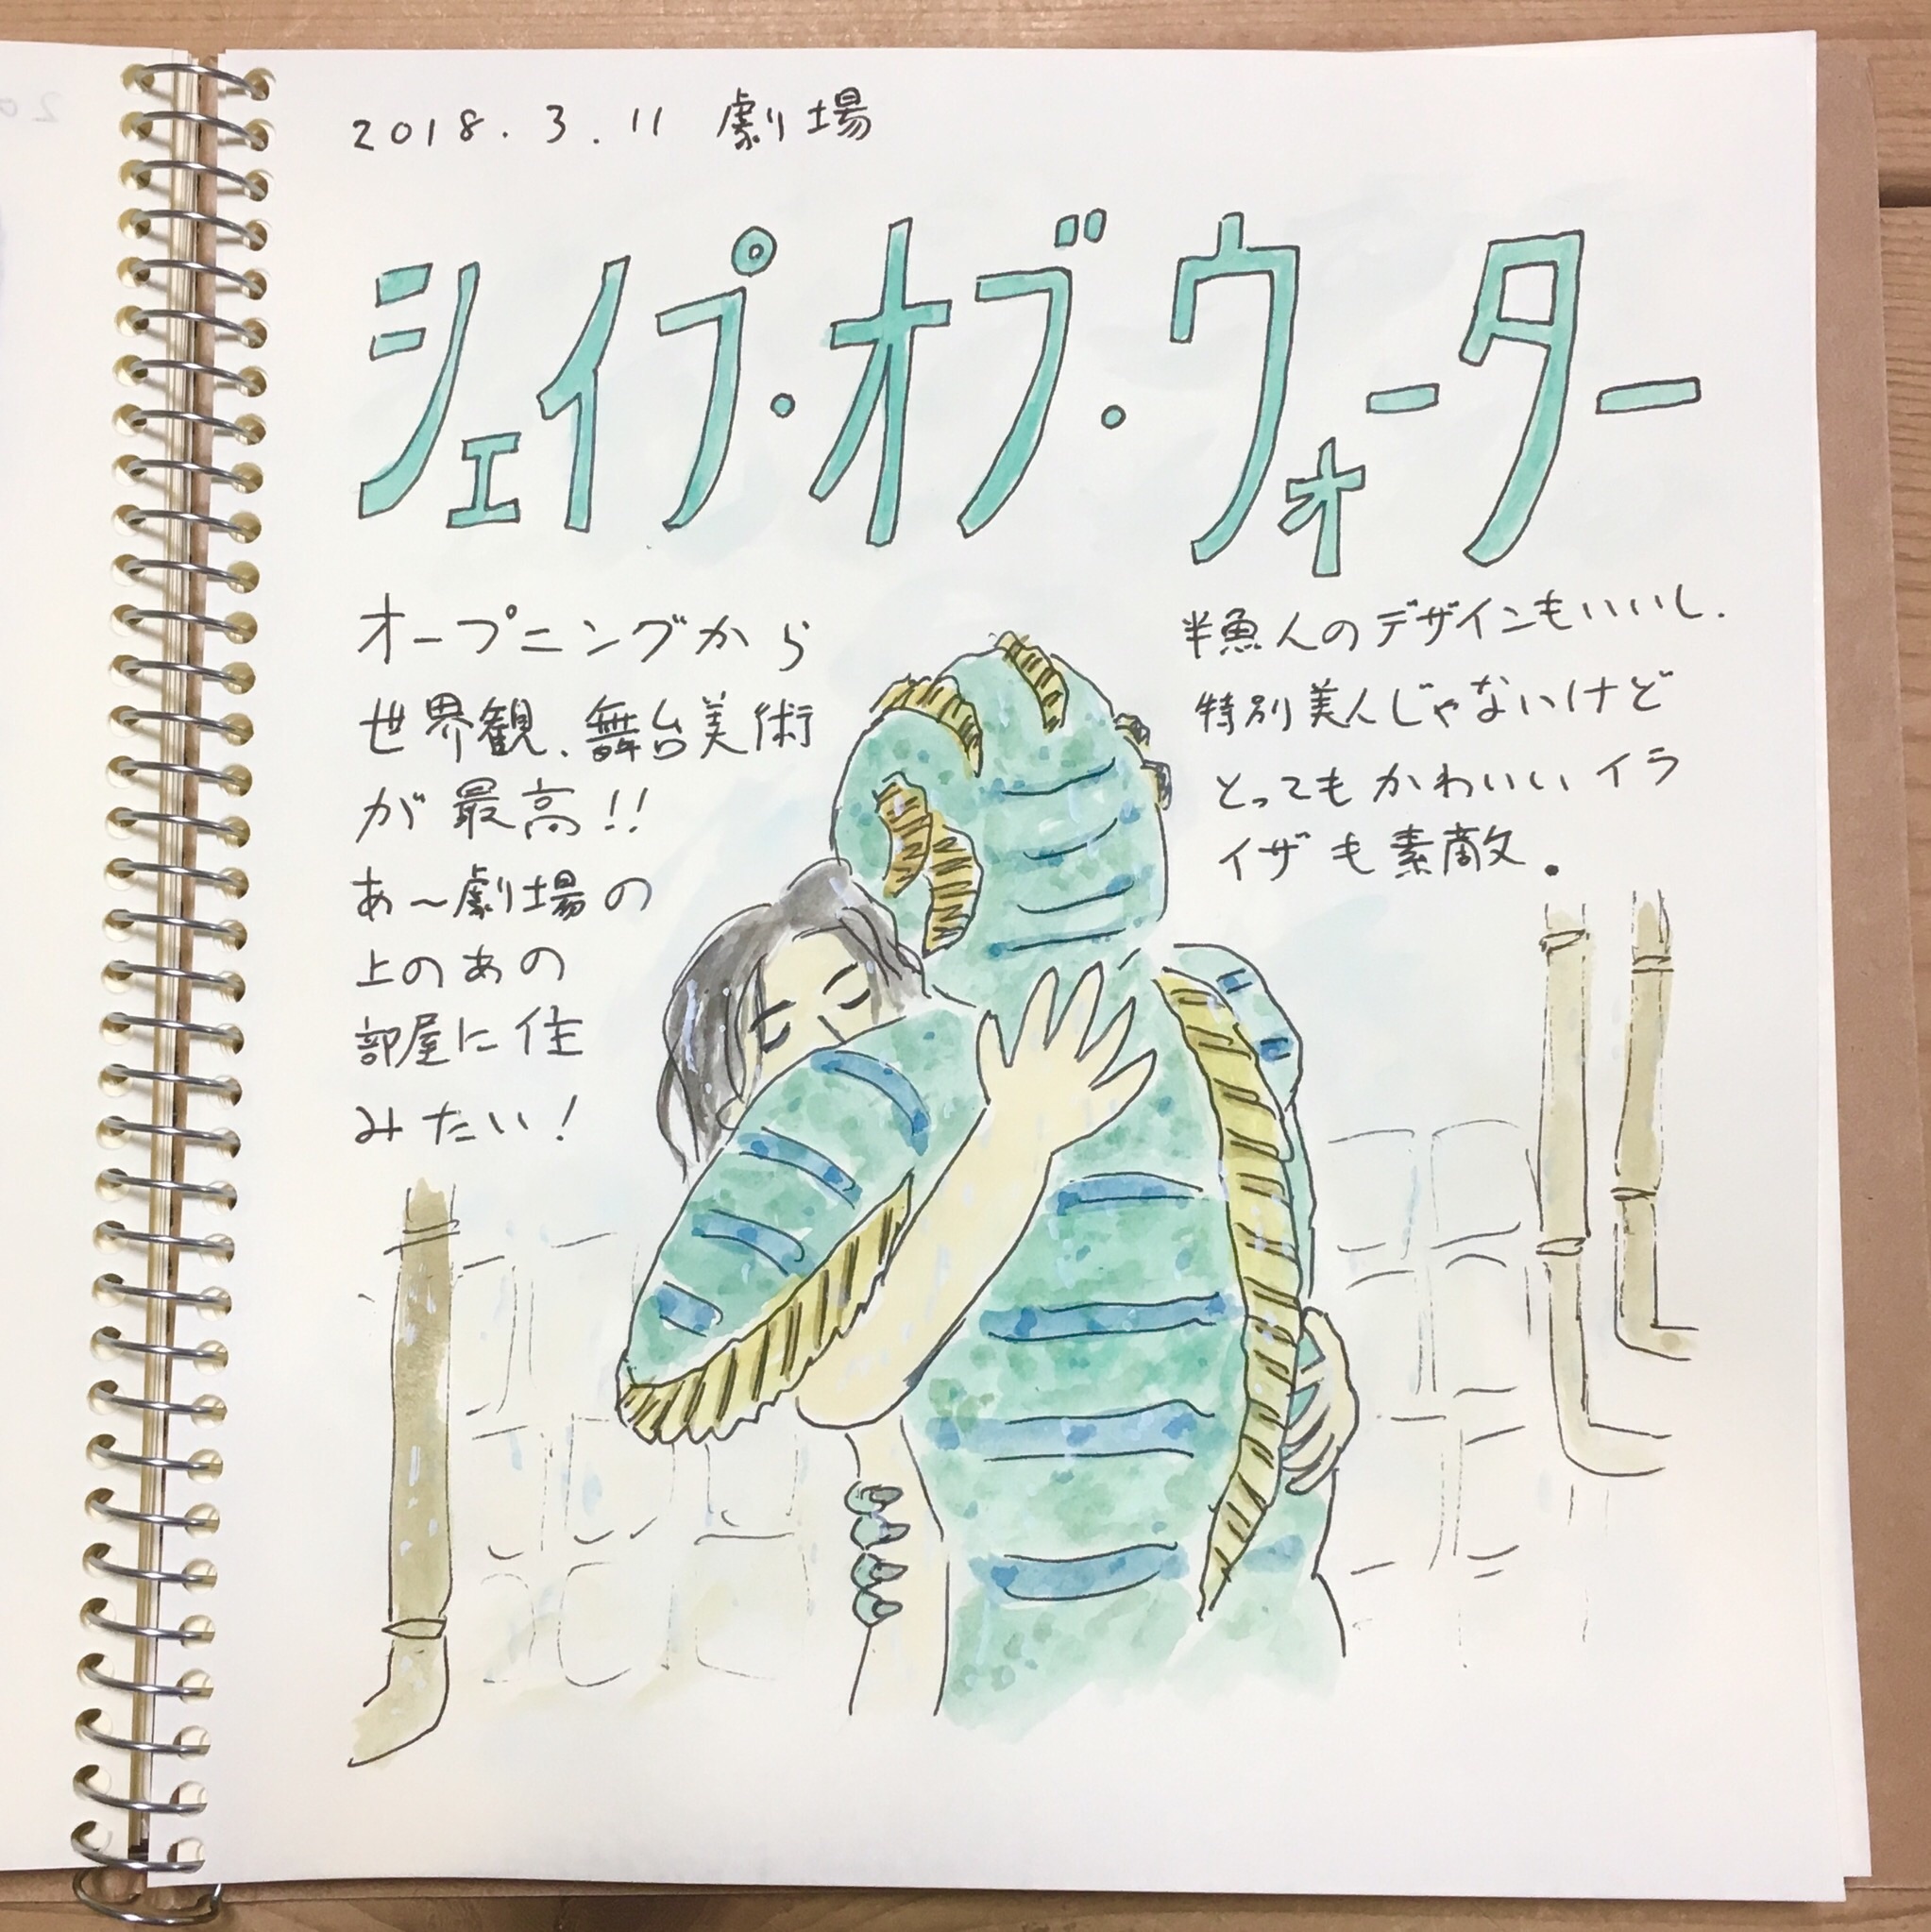 2018.3.11 劇場
シェイプ・オブ・ウォーター
オープニングから
世界観、舞台美術
が最高!!
あ〜劇場の
上のあの
部屋に住
みたい!
半魚人のデザインもいいし、
特別美人じゃないけど
とってもかわいいイラ
イザも素敵。